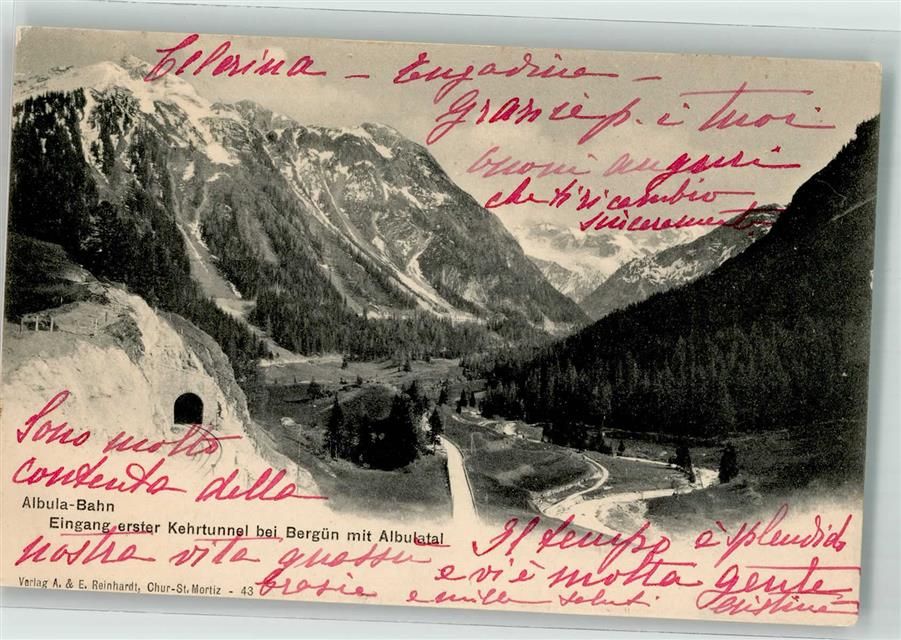 Celerina - Engadine -
Grazie p. i tuoi
buoni auguri
che ti ricambio
sinceramente
Sono molto
contenta della
Albula-Bahn
Eingang erster Kehrtunnel bei Bergün mit Albulatal
nostra vita quassù
Il tempo è splendido
e vi è molta gente
Verlag A. & E. Reinhardt, Chur-St. Mortiz - 43
e mille saluti